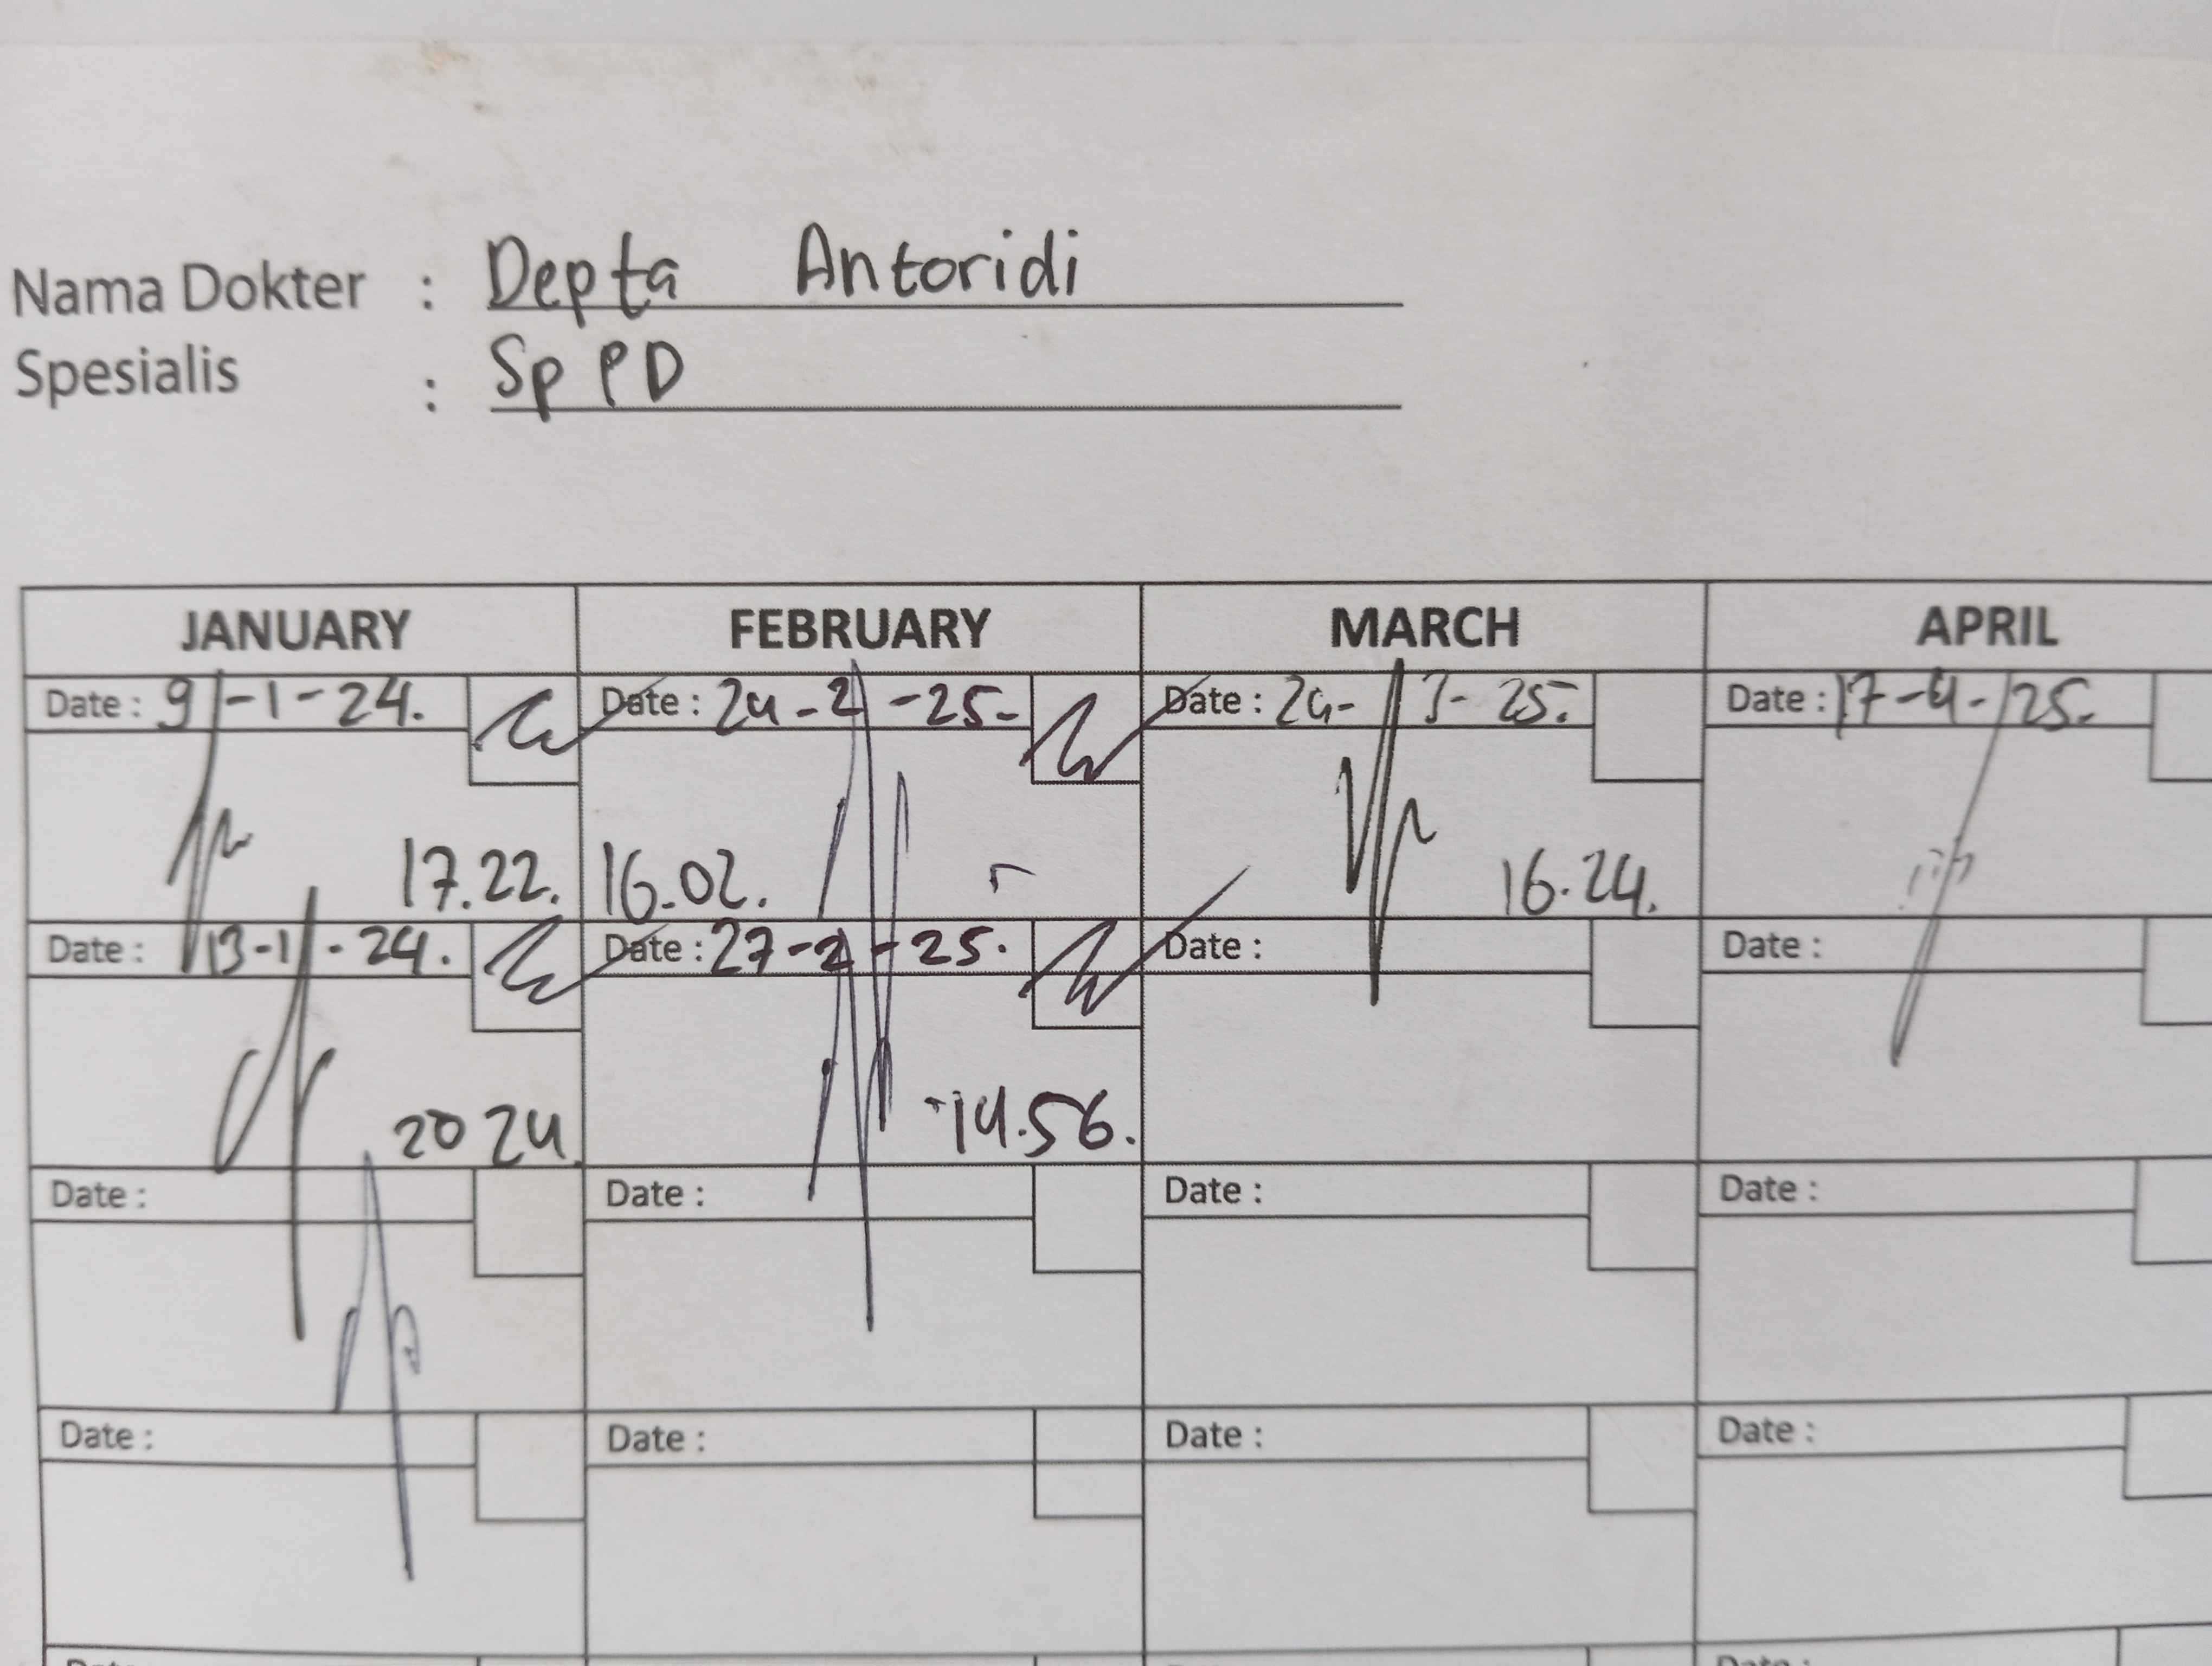 Nama Dokter : Depta Antoridi
Spesialis : Sp PD
JANUARY FEBRUARY MARCH APRIL
Date : 9-1-24. Date : 24-2-25- Date : 24-3-25. Date : 17-4-25.
17.22. 16.02. 16.24.
Date : 13-1-24. Date : 27-2-25. Date : Date :
20 24. 14.56.
Date : Date : Date : Date :
Date : Date : Date : Date :